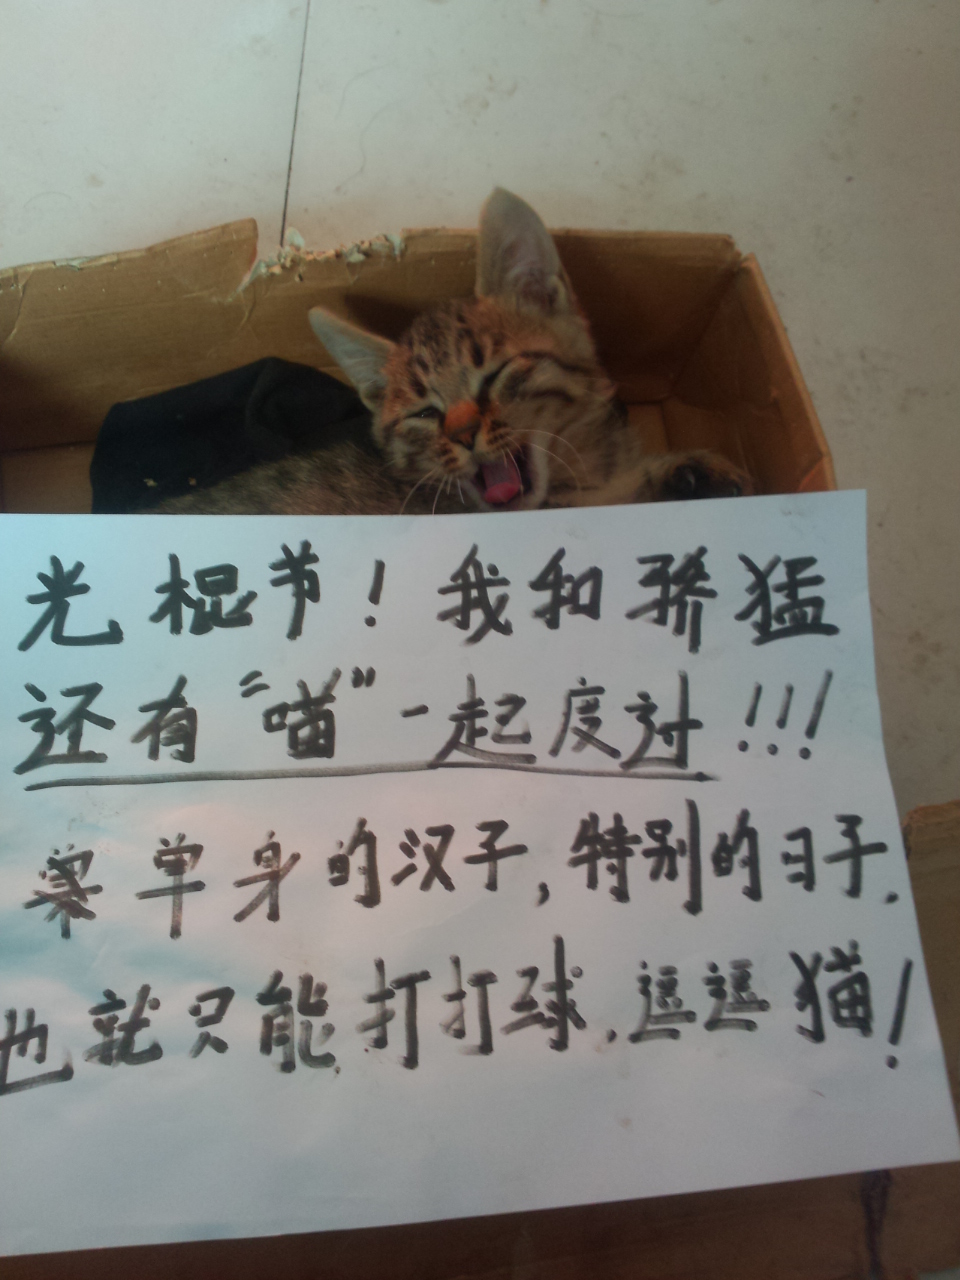 光棍节！我和骄猛
还有“喵”一起度过！！！
单身的汉子，特别的日子．
也就只能打打球．逗逗猫！